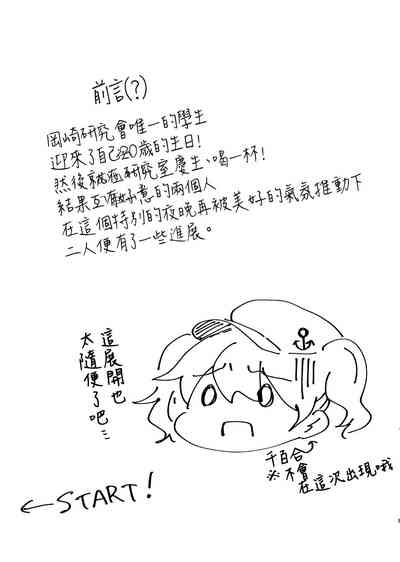 前言(?)
岡崎研究會唯一的學生
迎來了自己20歲的生日!
然後就在研究室慶生、喝一杯!
結果互有好意的兩個人
在這個特別的夜晚再被美好的氣氛推動下
二人便有了一些進展。
這展開也
太隨便了吧…
千百合
※不會
在這次出現哦
←START!